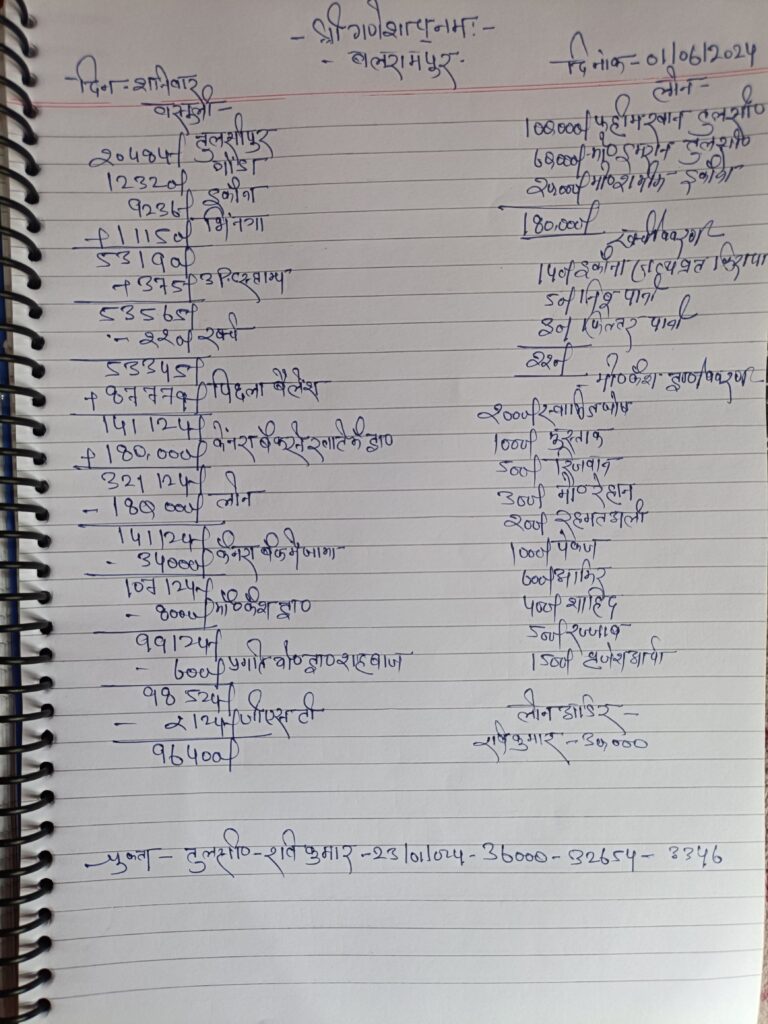 -श्री गणेशाय नमः-
- बलरामपुर -
दिन - शनिवार
दिनांक - 01/06/2024
वसूली -
20484/ तुलसीपुर
12320/ गोंडा
9236/ इकौना
+11150/ भिनगा
53190/
+375/
53565/
:- 220/ खर्च
53345/
+87779/ पिछला बैलेंस
141124/
+180,000/ केनरा बैंक से खाते के द्वा०
321124/
- 180000/ लोन
141124/
- 34000/ केनरा बैंक में जमा
107124/
- 8000/ मो० कैश द्वा०
99124/
- 600/ प्रगति द्वा० शहबाज
98524/
- 2124/ जीएसटी
96400/
लोन -
100,000/ फहीम खान तुलसी०
60,000/ मो० इमरान तुलसी०
20,000/ मो० शमीम इकौना
180,000/
खर्च विवरण
140/ इकौना किराया
50/ पानी
30/ फिल्टर पानी
220/
मो० कैश द्वा० विवरण
2000/
1000/ मुस्ताक
500/ रिजवान
300/ मो० रेहान
200/ रहमत अली
1000/ पंकज
600/ आमिर
400/ शाहिद
500/ रज्जाब
1500/ बृजेश आर्या
लोन आर्डर -
रवि कुमार - 30,000
मुक्ता - तुलसी० - रवि कुमार - 23/01/024 - 36000 - 32654 - 3346